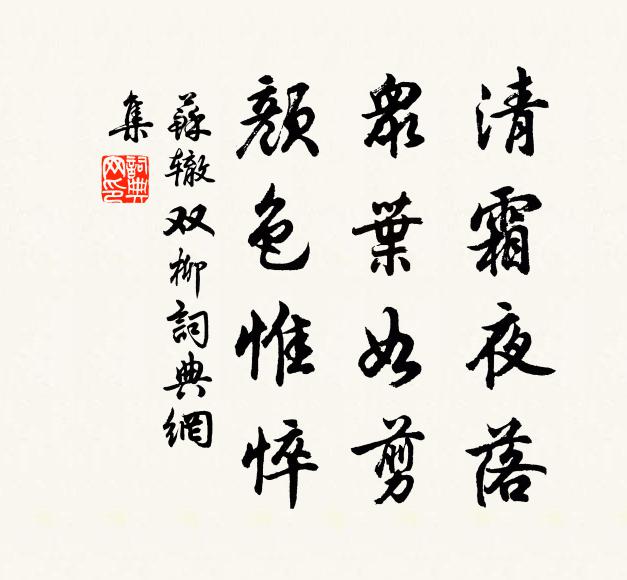 清霜夜落
衆葉如剪
顔色惟悴
蘇辙双柳詞典網
集
詞典網印